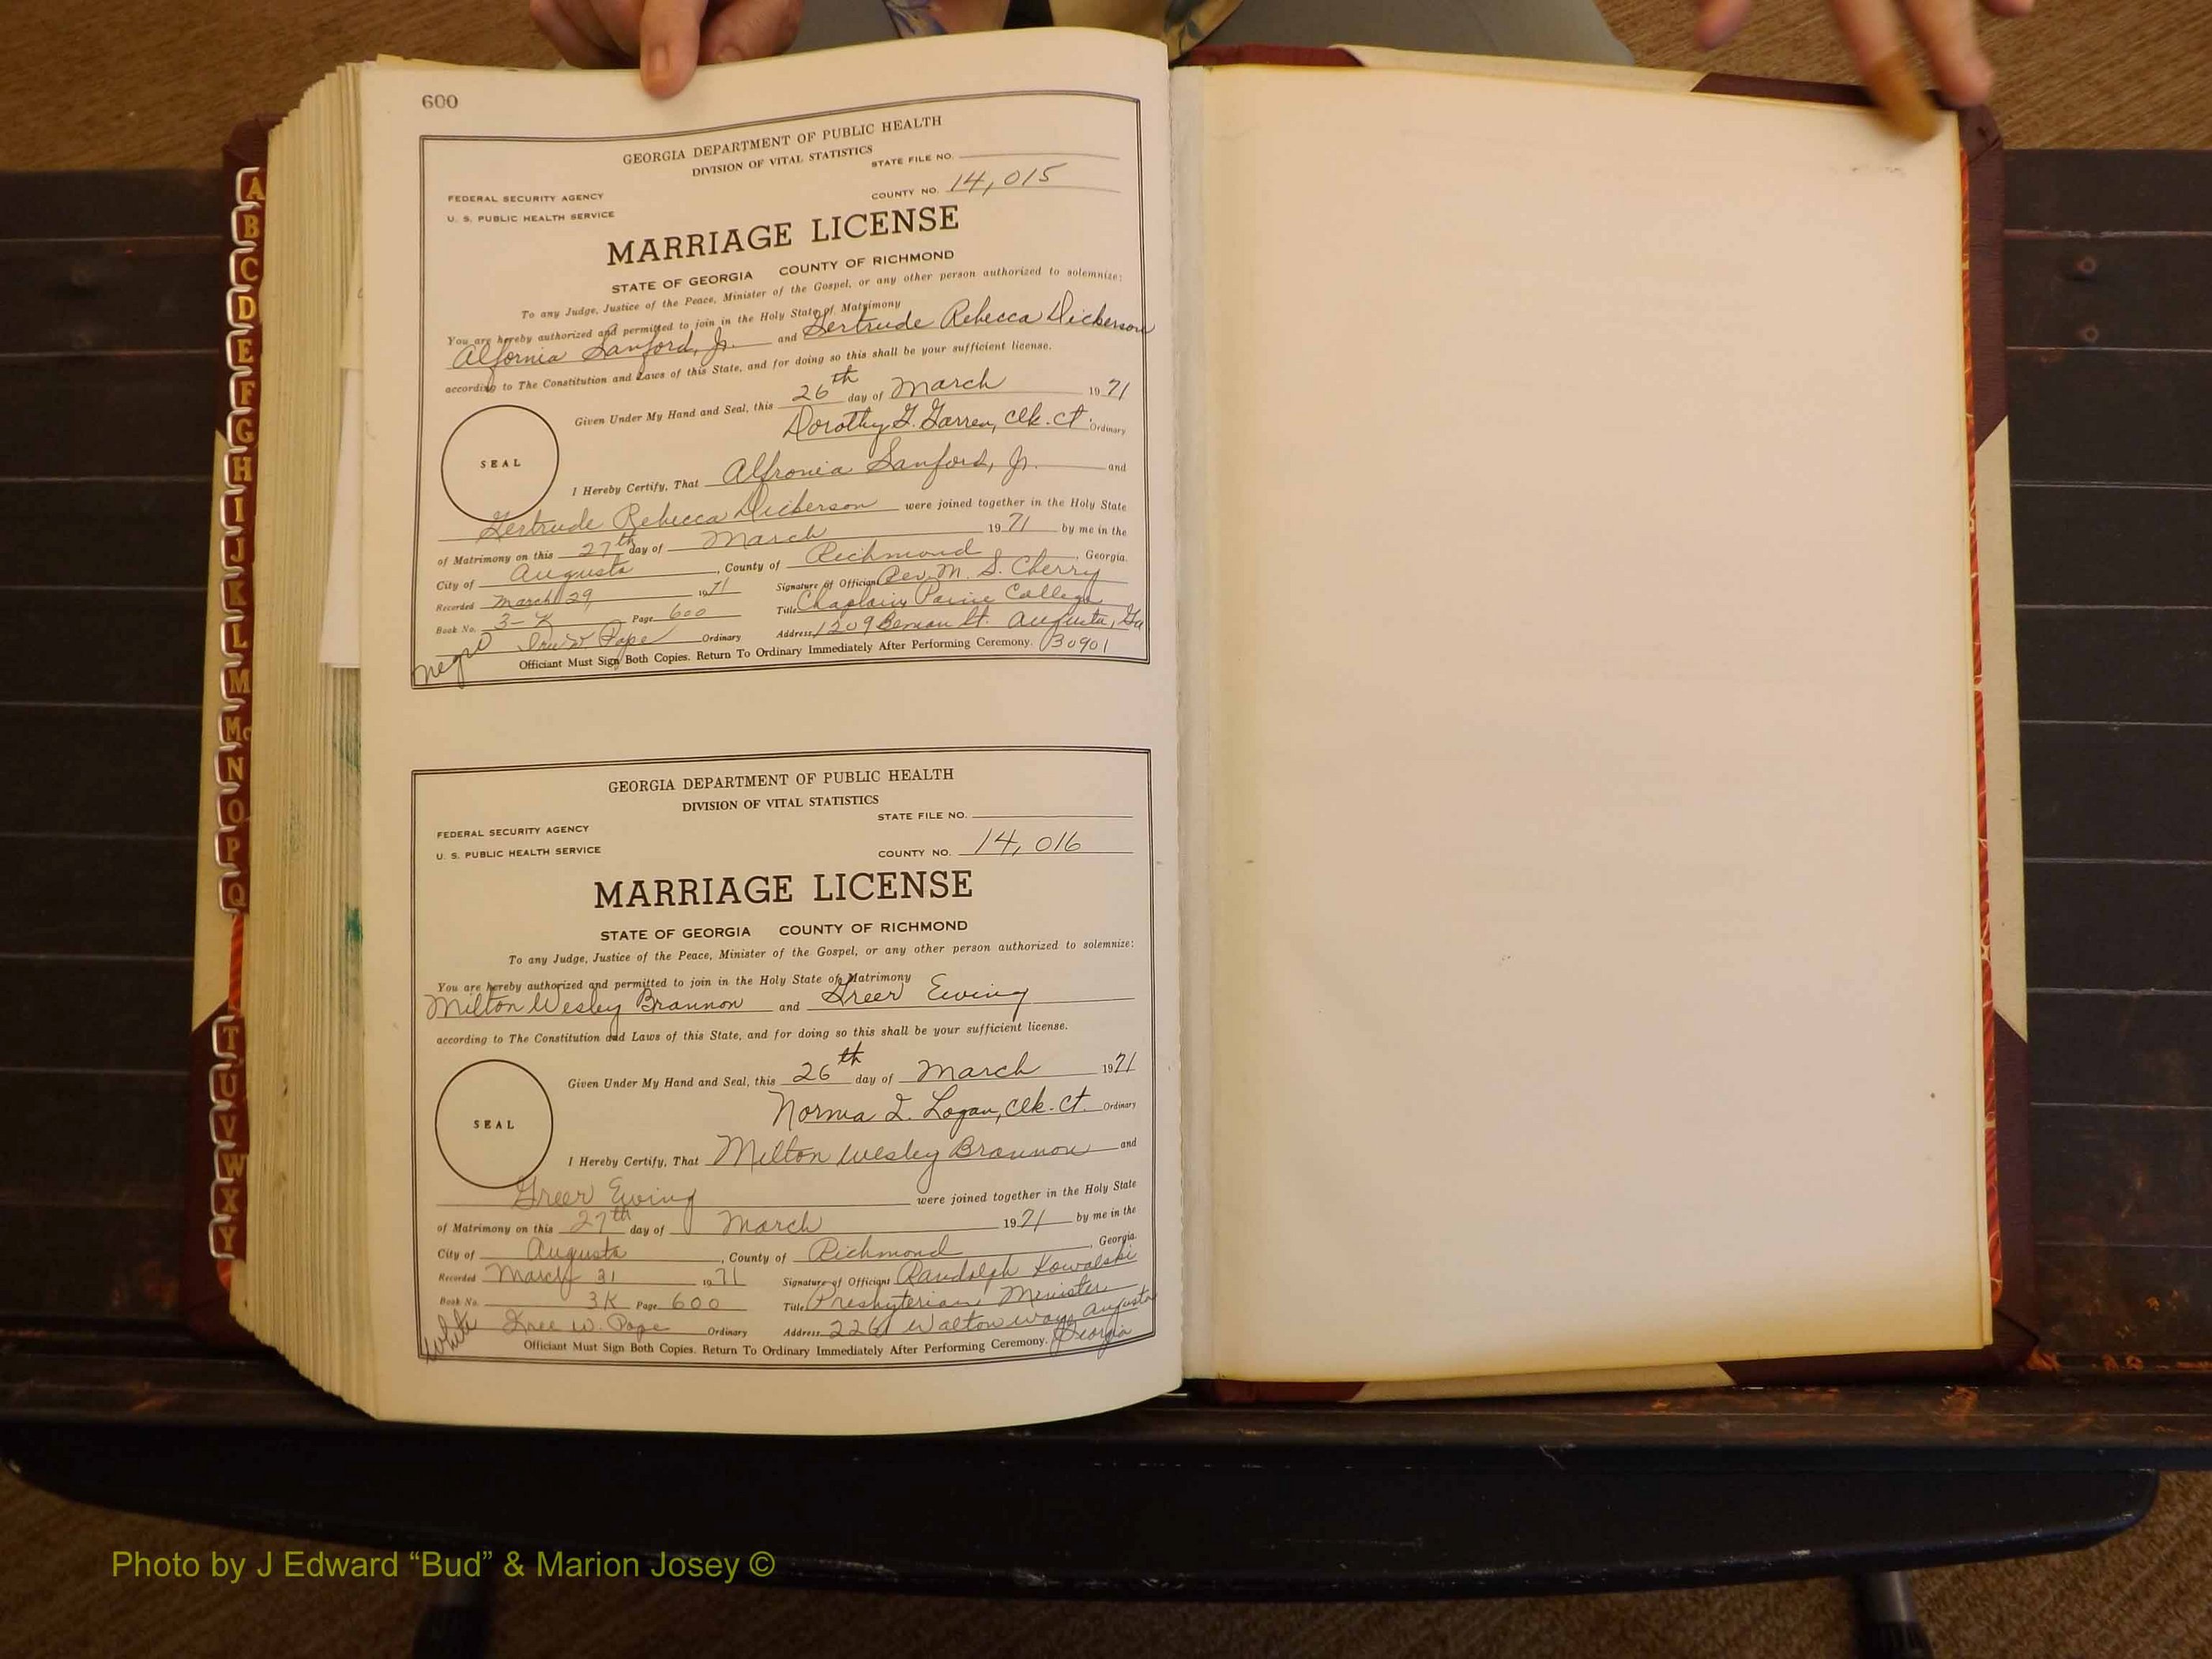 600
GEORGIA DEPARTMENT OF PUBLIC HEALTH
DIVISION OF VITAL STATISTICS
STATE FILE NO.
FEDERAL SECURITY AGENCY
COUNTY NO. 14,015
U. S. PUBLIC HEALTH SERVICE
MARRIAGE LICENSE
STATE OF GEORGIA COUNTY OF RICHMOND
To any Judge, Justice of the Peace, Minister of the Gospel, or any other person authorized to solemnize:
You are hereby authorized and permitted to join in the Holy State of Matrimony
Alfornia Sanford, Jr. and Gertrude Rebecca Dickerson
according to The Constitution and Laws of this State, and for doing so this shall be your sufficient license.
Given Under My Hand and Seal, this 26th day of March 1971
Dorothy G. Garren, Clk. Ct. Ordinary
SEAL
I Hereby Certify, That Alfronia Sanford, Jr. and
Gertrude Rebecca Dickerson were joined together in the Holy State
of Matrimony on this 27th day of March 1971 by me in the
City of Augusta, County of Richmond, Georgia.
Recorded March 29, 1971 Signature of Officiant Rev. M. S. Cherry
Book No. 3-K Page 600 Title Chaplain, Paine College
Pope Ordinary Address 1209 Beman St. Augusta, Ga
negro Officiant Must Sign Both Copies. Return To Ordinary Immediately After Performing Ceremony. 30901
GEORGIA DEPARTMENT OF PUBLIC HEALTH
DIVISION OF VITAL STATISTICS
STATE FILE NO.
FEDERAL SECURITY AGENCY
U. S. PUBLIC HEALTH SERVICE COUNTY NO. 14,016
MARRIAGE LICENSE
STATE OF GEORGIA COUNTY OF RICHMOND
To any Judge, Justice of the Peace, Minister of the Gospel, or any other person authorized to solemnize:
You are hereby authorized and permitted to join in the Holy State of Matrimony
Milton Wesley Brannon and Greer Ewing
according to The Constitution and Laws of this State, and for doing so this shall be your sufficient license.
Given Under My Hand and Seal, this 26th day of March 1971
Norma I. Logan, Clk. Ct. Ordinary
SEAL
I Hereby Certify, That Milton Wesley Brannon and
Greer Ewing were joined together in the Holy State
of Matrimony on this 27th day of March 1971 by me in the
City of Augusta, County of Richmond, Georgia.
Recorded March 31 1971 Signature of Officiant Randolph Kowalski
Book No. 3K Page 600 Title Presbyterian Minister
White W. Pope Ordinary Address 2261 Walton Way Augusta
Officiant Must Sign Both Copies. Return To Ordinary Immediately After Performing Ceremony. Georgia
A
B
C
D
E
F
G
H
I
J
K
L
M
Mc
N
O
P
Q
T
U
V
W
X
Y
Photo by J Edward “Bud” & Marion Josey ©